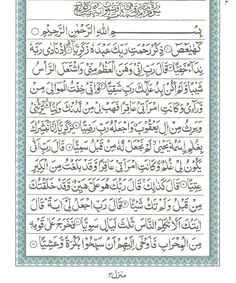 بِسْمِ اللّٰهِ الرَّحْمٰنِ الرَّحِيْمِ
كٓهٰيٰعٓصٓ ۝ ذِكْرُ رَحْمَتِ رَبِّكَ عَبْدَهٗ زَكَرِيَّا ۝ اِذْ نَادٰى رَبَّهٗ
نِدَآءً خَفِيًّا ۝ قَالَ رَبِّ اِنِّيْ وَهَنَ الْعَظْمُ مِنِّيْ وَاشْتَعَلَ الرَّاْسُ
شَيْبًا وَّلَمْ اَكُنْۢ بِدُعَآئِكَ رَبِّ شَقِيًّا ۝ وَاِنِّيْ خِفْتُ الْمَوَالِيَ مِنْ
وَّرَآءِيْ وَكَانَتِ امْرَاَتِيْ عَاقِرًا فَهَبْ لِيْ مِنْ لَّدُنْكَ وَلِيًّا ۝ يَّرِثُنِيْ
وَيَرِثُ مِنْ اٰلِ يَعْقُوْبَ وَاجْعَلْهُ رَبِّ رَضِيًّا ۝ يٰزَكَرِيَّآ اِنَّا نُبَشِّرُكَ
بِغُلٰمِ ۨاسْمُهٗ يَحْيٰى لَمْ نَجْعَلْ لَّهٗ مِنْ قَبْلُ سَمِيًّا ۝ قَالَ رَبِّ اَنّٰى
يَكُوْنُ لِيْ غُلٰمٌ وَّكَانَتِ امْرَاَتِيْ عَاقِرًا وَّقَدْ بَلَغْتُ مِنَ الْكِبَرِ
عِتِيًّا ۝ قَالَ كَذٰلِكَ قَالَ رَبُّكَ هُوَ عَلَيَّ هَيِّنٌ وَّقَدْ خَلَقْتُكَ
مِنْ قَبْلُ وَلَمْ تَكُ شَيْـًٔا ۝ قَالَ رَبِّ اجْعَلْ لِّيْ اٰيَةً قَالَ
اٰيَتُكَ اَلَّا تُكَلِّمَ النَّاسَ ثَلٰثَ لَيَالٍ سَوِيًّا ۝ فَخَرَجَ عَلٰى قَوْمِهٖ
مِنَ الْمِحْرَابِ فَاَوْحٰٓى اِلَيْهِمْ اَنْ سَبِّحُوْا بُكْرَةً وَّعَشِيًّا ۝
منزل ۴